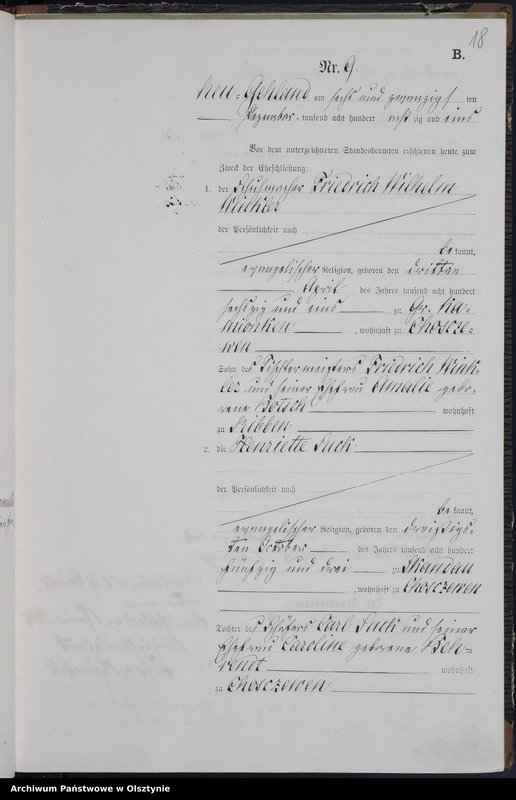 18
B.
Nr. 9.
Neu-Gehland am sechs und zwanzigsten
Dezember tausend acht hundert achtzig und eins
Vor dem unterzeichneten Standesbeamten erschienen heute zum
Zweck der Eheschließung:
1. der Schuhmacher Friedrich Wilhelm
Winkler
der Persönlichkeit nach
bekannt,
evangelischer Religion, geboren den dritten
April des Jahres tausend acht hundert
sechszig und eins zu Gr. Ka-
mionken, wohnhaft zu Chosze-
wen
Sohn des Tischlermeisters Friedrich Wink-
ler und seiner Ehefrau Amalie gebo-
rene Botsch wohnhaft
zu Ribben
2. die Henriette Suck
der Persönlichkeit nach
bekannt,
evangelischer Religion, geboren den dreißigs-
ten October des Jahres tausend acht hundert
fünfzig und drei zu Skandau
, wohnhaft zu Choszewen
Tochter des Schäfers Carl Suck und seiner
Ehefrau Caroline geborene Beh-
rendt wohnhaft
zu Choszewen
Archiwum Państwowe w Olsztynie